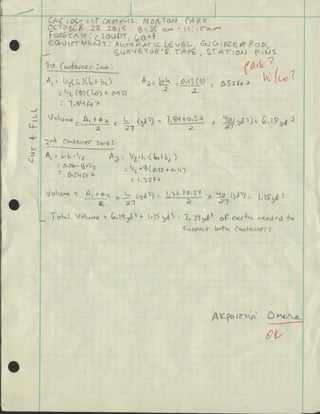 CAE 105: IIT CAMPUS: MORTON PARK
OCTOBER 22 2015 8:35 am - 11:15am
FORECAST: CLOUDY, 60°F
EQUIPTMENT: AUTOMATIC LEVEL, ENGINEER ROD,
SURVEYOR'S TAPE, STATION PINS
park?
hi/lo?
1st Container Zone:
A₁ = ½(h)(b₁+b₂) A₂ = b·h/2 = 0.13(8)/2 = 0.52ft²
= ½(8)(1.01 + 0.97)
= 7.89ft²
Volume = A₁+A₂/2 × L/27 (yd³) = 7.89+0.52/2 × 40/27 (yd³) = 6.19yd³
CUT & FILL
2nd Container Zone:
A₁ = b·h·½ A₂ = ½·h·(b₁+b₂)
= 0.06·8·½ = ½·8(0.22+0.11)
= 0.24ft² = 1.32ft²
Volume = A₁+A₂/2 × L/27 (yd³) = 1.32+0.24/2 × 40/27 (yd³) = 1.15yd³
Total Volume = 6.19yd³ + 1.15yd³ = 7.34yd³ of earth needed to
support both containers
Omene
OK